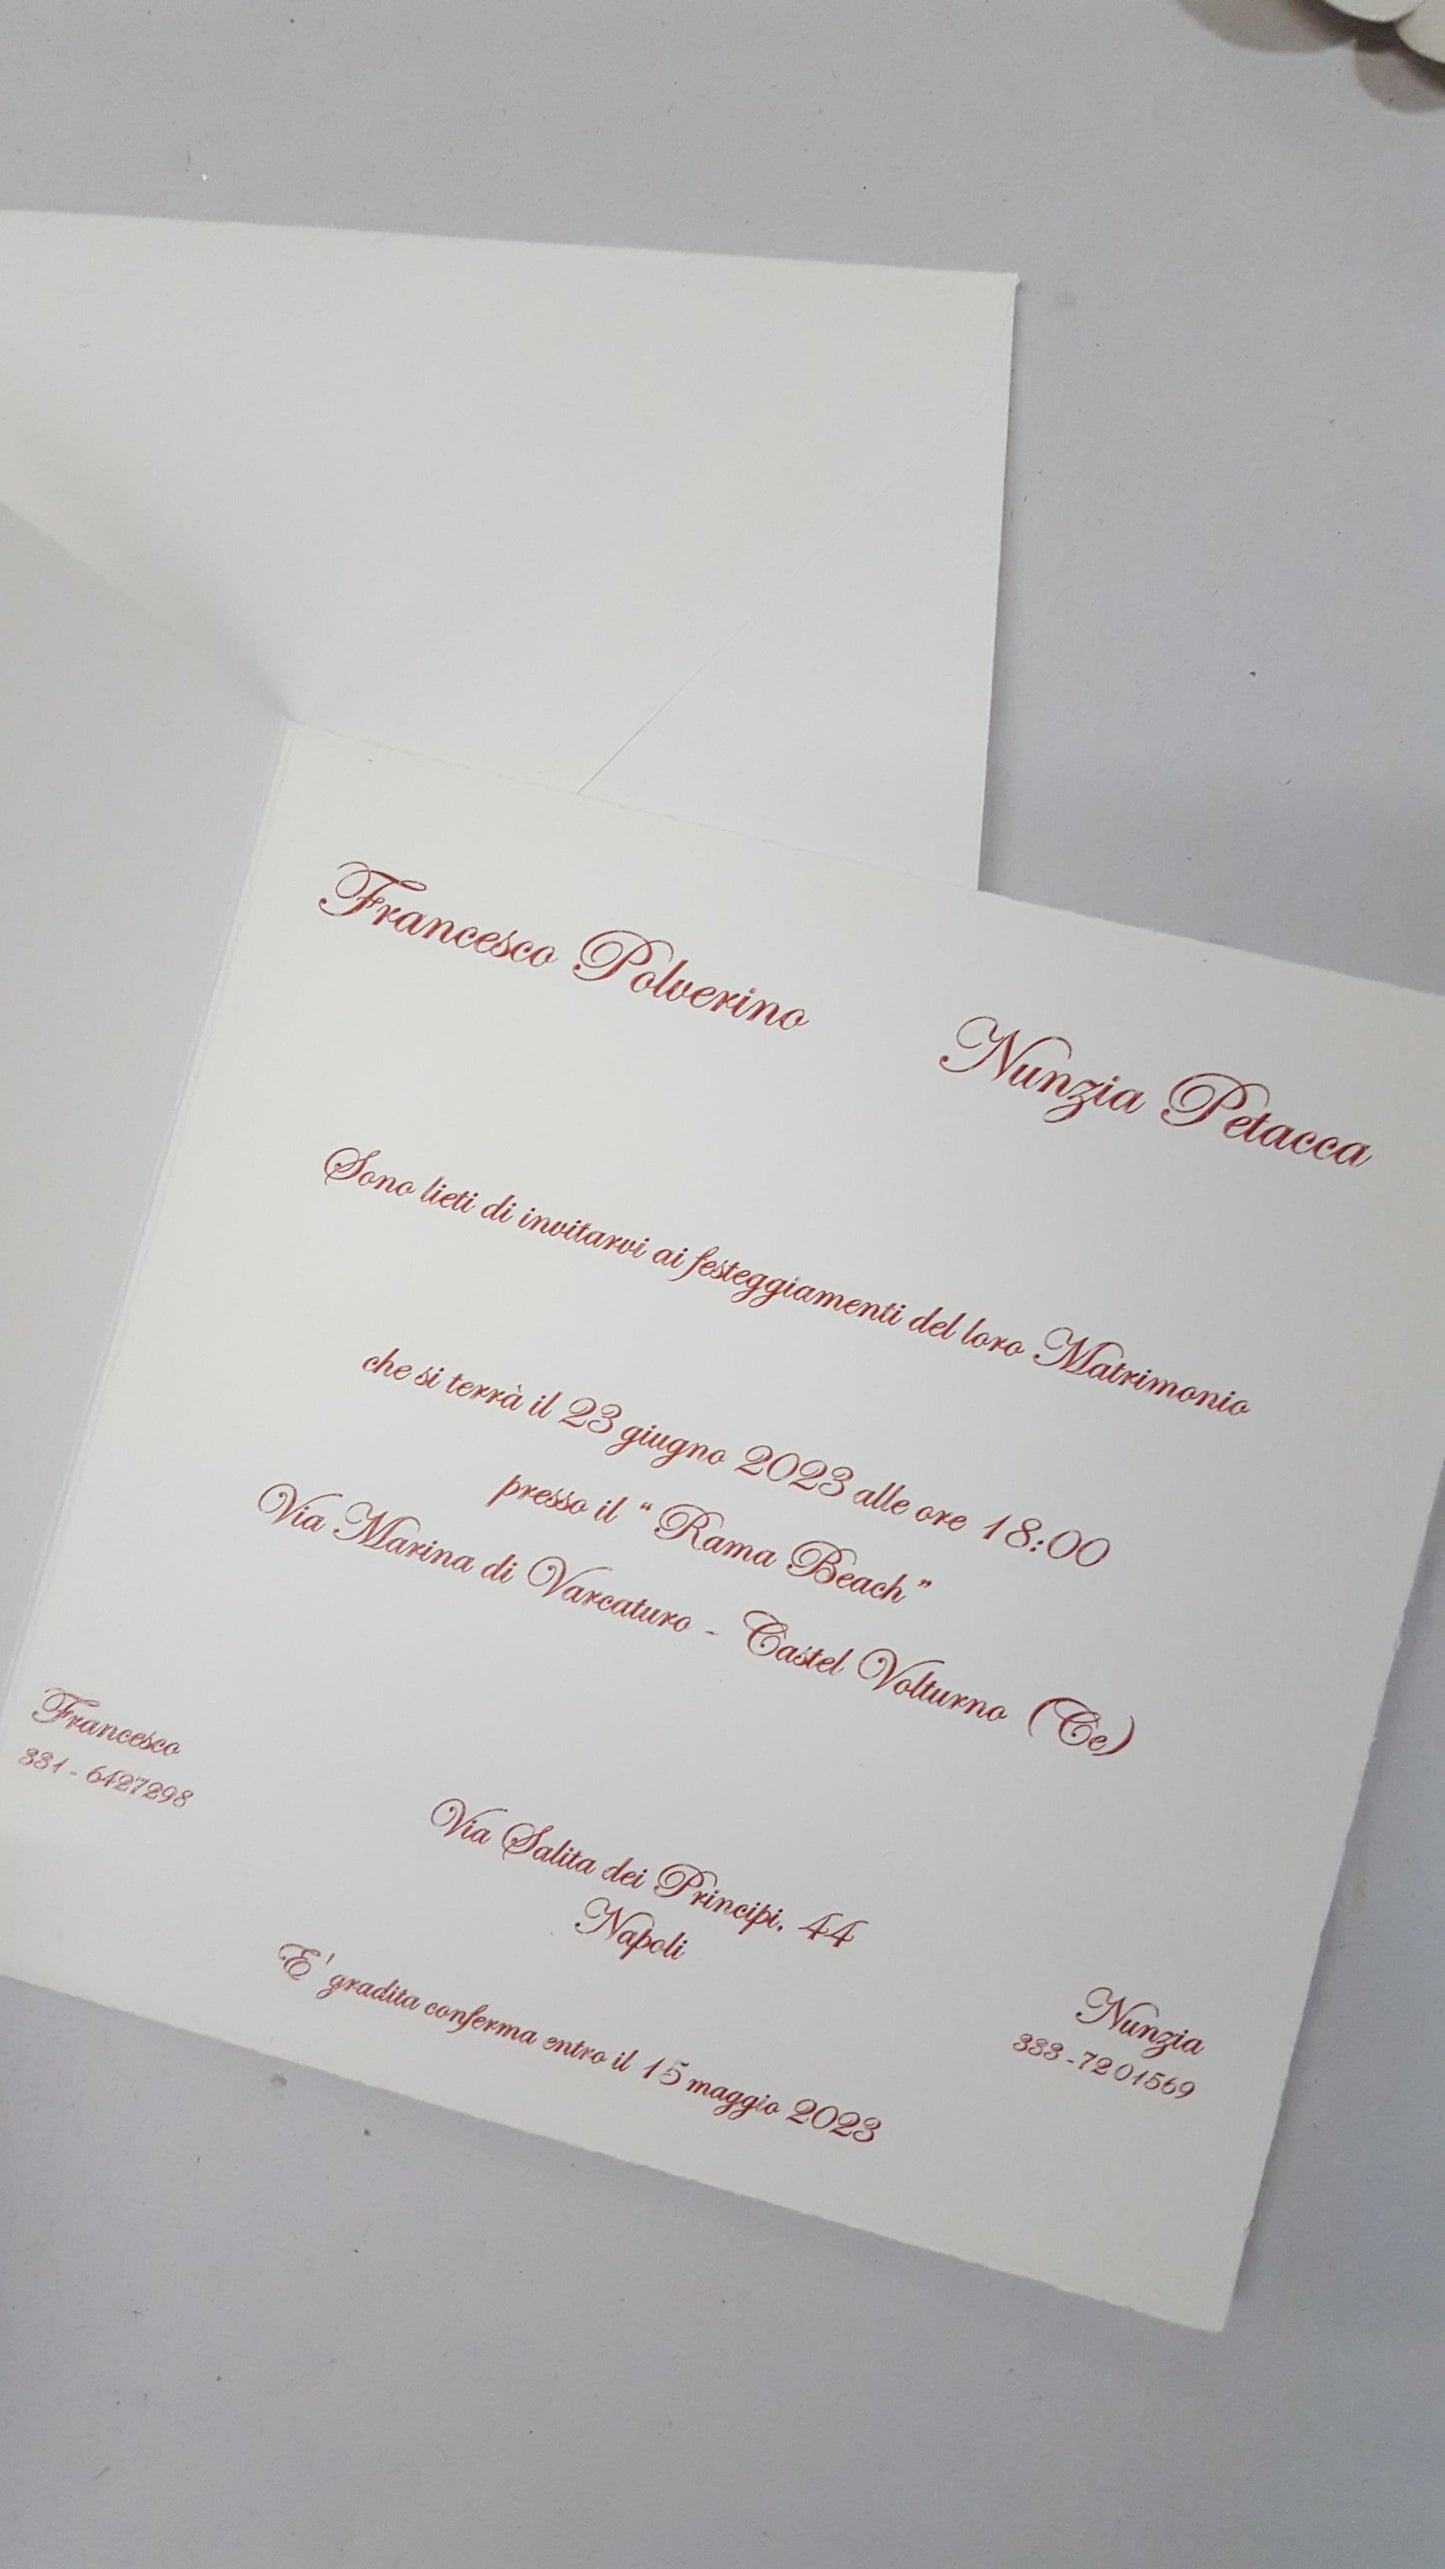 Francesco Polverino Nunzia Petacca
Sono lieti di invitarvi ai festeggiamenti del loro Matrimonio
che si terrà il 23 giugno 2023 alle ore 18:00
presso il “ Rama Beach”
Via Marina di Varcaturo - Castel Volturno (Ce)
Francesco
331 - 6427298
Via Salita dei Principi, 44
Napoli
Nunzia
333 -7201569
E' gradita conferma entro il 15 maggio 2023